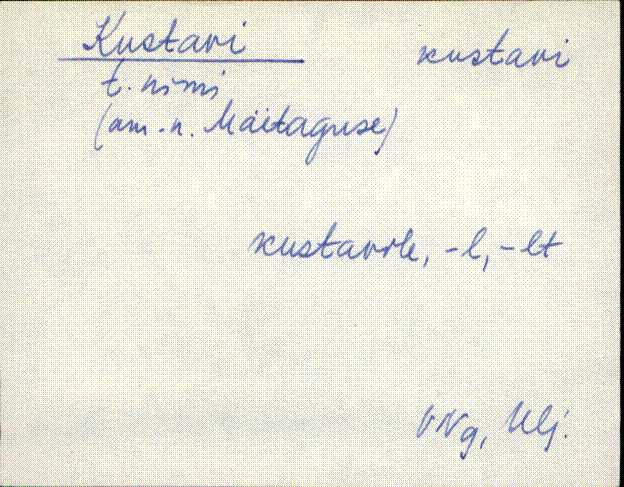 Kustavi kustavi
t. nimi
(am. n. Mäetaguse)
kustavile, -l, -lt
VNg, Ulj.